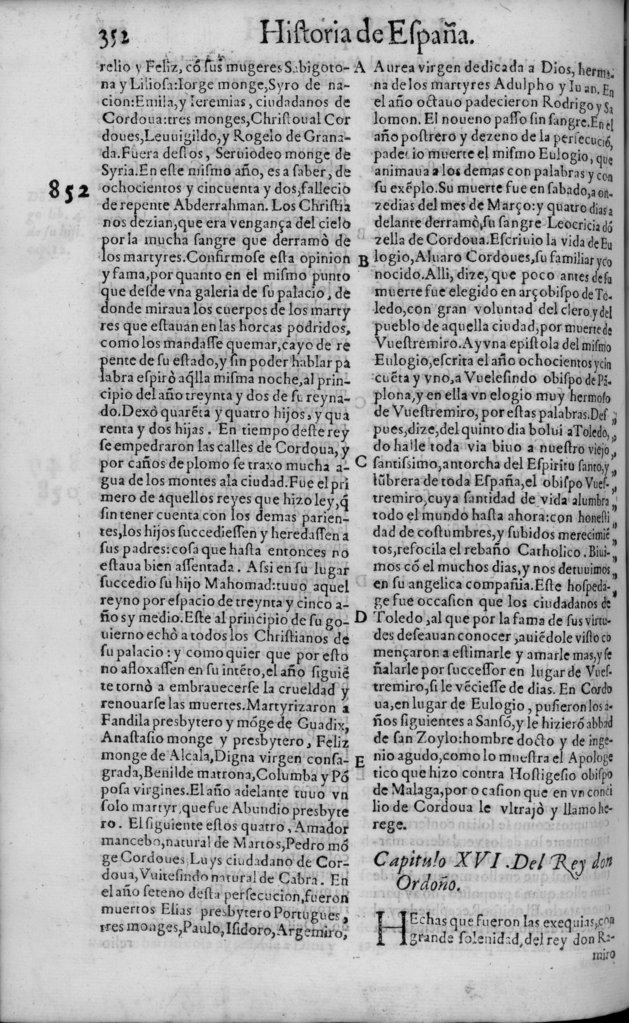 352 Hiſtoria de Eſpaña.
relio y Feliz, cõ ſus mugeres Sabigoto-
na y Lilioſa: Iorge monge, Syro de na-
cion: Emila, y Ieremias, ciudadanos de
Cordoua: tres monges, Chriſtoual Cor
doues, Leuuigildo, y Rogelo de Grana-
da. Fuera deſtos, Seruiodeo monge de
Syria. En eſte miſmo año, es a ſaber, de
852
ochocientos y cincuenta y dos, fallecio
de repente Abderrahman. Los Chriſtia
nos dezian, que era vengança del cielo
por la mucha ſangre que derramò de
los martyres. Confirmoſe eſta opinion
y fama, por quanto en el miſmo punto
que deſde vna galeria de ſu palacio, de
donde miraua los cuerpos de los marty
res que eſtauan en las horcas podridos,
como los mandaſſe quemar, cayo de re
pente de ſu eſtado, y ſin poder hablar pa
labra eſpirò aq̃lla miſma noche, al prin-
cipio del año treynta y dos de ſu reyna-
do. Dexò quarẽta y quatro hijos, y qua
renta y dos hijas. En tiempo deſte rey
ſe empedraron las calles de Cordoua, y
por caños de plomo ſe traxo mucha a-
gua de los montes ala ciudad. Fue el pri
mero de aquellos reyes que hizo ley, q̃
ſin tener cuenta con los demas parien-
tes, los hijos ſuccedieſſen y heredaſſen a
sus padres: coſa que haſta entonces no
eſtaua bien aſſentada. Aſsi en ſu lugar
ſuccedio ſu hijo Mahomad: tuuo aquel
reyno por eſpacio de treynta y cinco a-
ños y medio. Eſte al principio de ſu go-
uierno echò a todos los Chriſtianos de
ſu palacio: y como quier que por eſto
no afloxaſſen en ſu intẽto, el año ſiguiẽ
te tornò a embrauecerſe la crueldad y
renouarſe las muertes. Martyrizaron a
Fandila presbytero y mõge de Guadix,
Anaſtaſio monge y presbytero, Feliz
monge de Alcala, Digna virgen conſa-
grada, Benilde matrona, Columba y Põ
poſa virgines. El año adelante tuuo vn
ſolo martyr, que fue Abundio presbyte
ro. El ſiguiente eſtos quatro, Amador
mancebo, natural de Martos, Pedro mõ
ge Cordoues, Luys ciudadano de Cor-
doua, Vuiteſindo natural de Cabra. En
el año ſeteno deſta perſecucion, fueron
muertos Elias presbytero Portugues,
tres monges, Paulo, Iſidoro, Argemiro,
A Aurea virgen dedicada a Dios, herma-
na de los martyres Adulpho y Iuan. En
el año octauo padecieron Rodrigo y Sa
lomon. El noueno paſſo ſin ſangre. En el
año poſtrero y dezeno de la perſecuciõ,
padecio muerte el miſmo Eulogio, que
animaua a los demas con palabras y con
ſu exẽplo. Su muerte fue en ſabado, a on-
ze dias del mes de Março: y quatro dias a
delante derramò, ſu ſangre Leocricia dõ
zella de Cordoua. Eſcriuio la vida de Eu
B logio, Aluaro Cordoues, ſu familiar y co
nocido. Alli, dize, que poco antes de ſu
muerte fue elegido en arçobiſpo de To-
ledo, con gran voluntad del clero y del
pueblo de aquella ciudad, por muerte de
Vueſtremiro. Ay vna epiſtola del miſmo
Eulogio, eſcrita el año ochocientos y cin
cuẽta y vno, a Vueleſindo obiſpo de Pã-
plona, y en ella vn elogio muy hermoſo
de Vueſtremiro, por eſtas palabras. Deſ „
pues, dize, del quinto dia bolui a Toledo, „
do halle toda via biuo a nueſtro viejo „
C ſantiſsimo, antorcha del Eſpiritu ſanto, y „
lũbrera de toda Eſpaña, el obiſpo Vueſ- „
tremiro, cuya ſantidad de vida alumbra „
todo el mundo haſta ahora: con honeſti „
dad de coſtumbres, y ſubidos merecimiẽ „
tos, refocila el rebaño Catholico. Biui- „
mos cõ el muchos dias, y nos detuuimos „
en ſu angelica compañia. Eſte hoſpeda- „
ge fue occaſion que los ciudadanos de
D Toledo, al que por la fama de ſus virtu-
des deſeauan conocer, auiẽdole viſto co
mençaron a eſtimarle y amarle mas, y ſe
ñalarle por ſucceſſor en lugar de Vueſ-
tremiro, ſi le vẽcieſſe de dias. En Cordo
ua, en lugar de Eulogio, puſieron los a-
ños ſiguientes a Sanſõ, y le hizierõ abbad
de ſan Zoylo: hombre docto y de inge-
E nio agudo, como lo mueſtra el Apologe
tico que hizo contra Hoſtigeſio obiſpo
de Malaga, por ocaſion que en vn conci
lio de Cordoua le vltrajò y llamo he-
rege.
Capitulo XVI. Del Rey don
Ordoño.
HEchas que fueron las exequias, con
grande ſolenidad, del rey don Ra-
miro